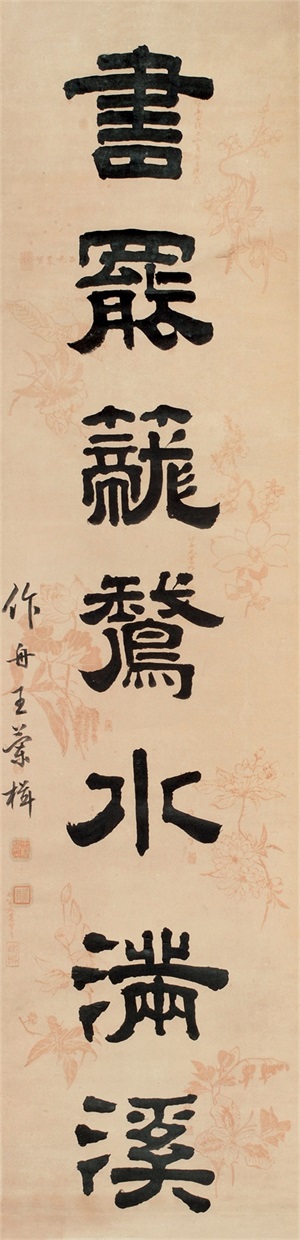 書罷籠鵞水滿溪
作舟王蘭楫